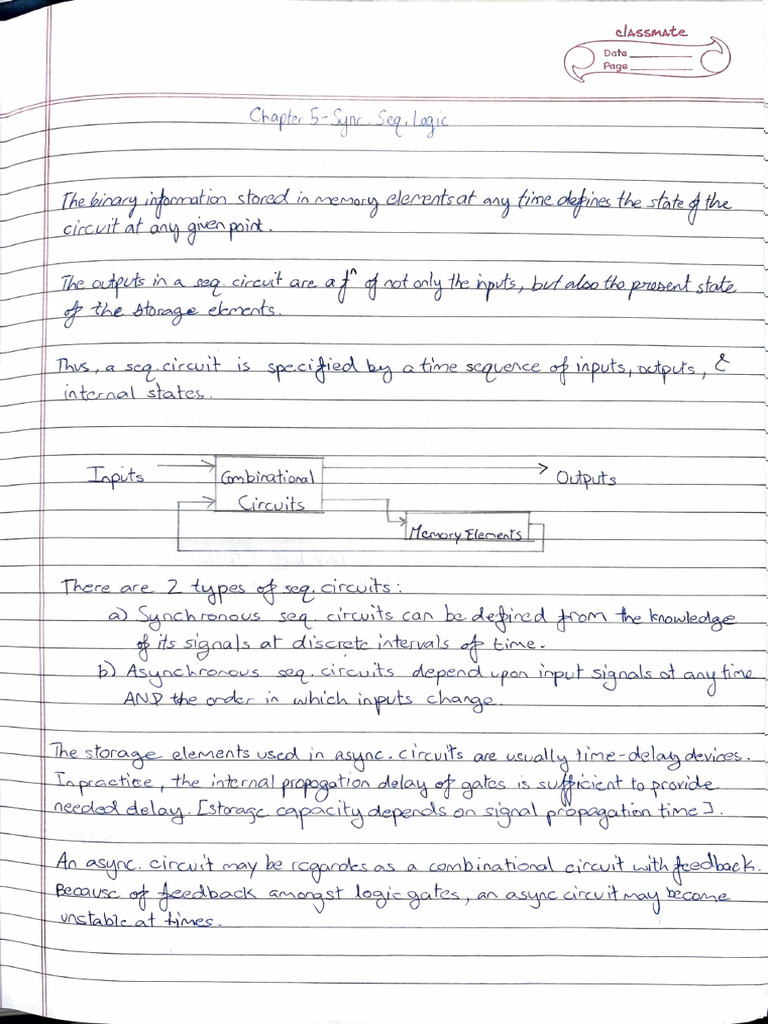 classmate
Date
Page
Chapter 5 - Sync. Seq. Logic
The binary information stored in memory elements at any time defines the state of the
circuit at any given point.
The outputs in a seq. circuit are a fⁿ of not only the inputs, but also the present state
of the storage elements.
Thus, a seq. circuit is specified by a time sequence of inputs, outputs, &
internal states.
Inputs
Combinational
Circuits
Outputs
Memory Elements
There are 2 types of seq. circuits:
a) Synchronous seq circuits can be defined from the knowledge
of its signals at discrete intervals of time.
b) Asynchronous seq. circuits depend upon input signals at any time
AND the order in which inputs change.
The storage elements used in async. circuits are usually time-delay devices.
In practice, the internal propogation delay of gates is sufficient to provide
needed delay. [Storage capacity depends on signal propagation time].
An async. circuit may be regardes as a combinational circuit with feedback.
Because of feedback amongst logic gates, an async circuit may become
unstable at times.